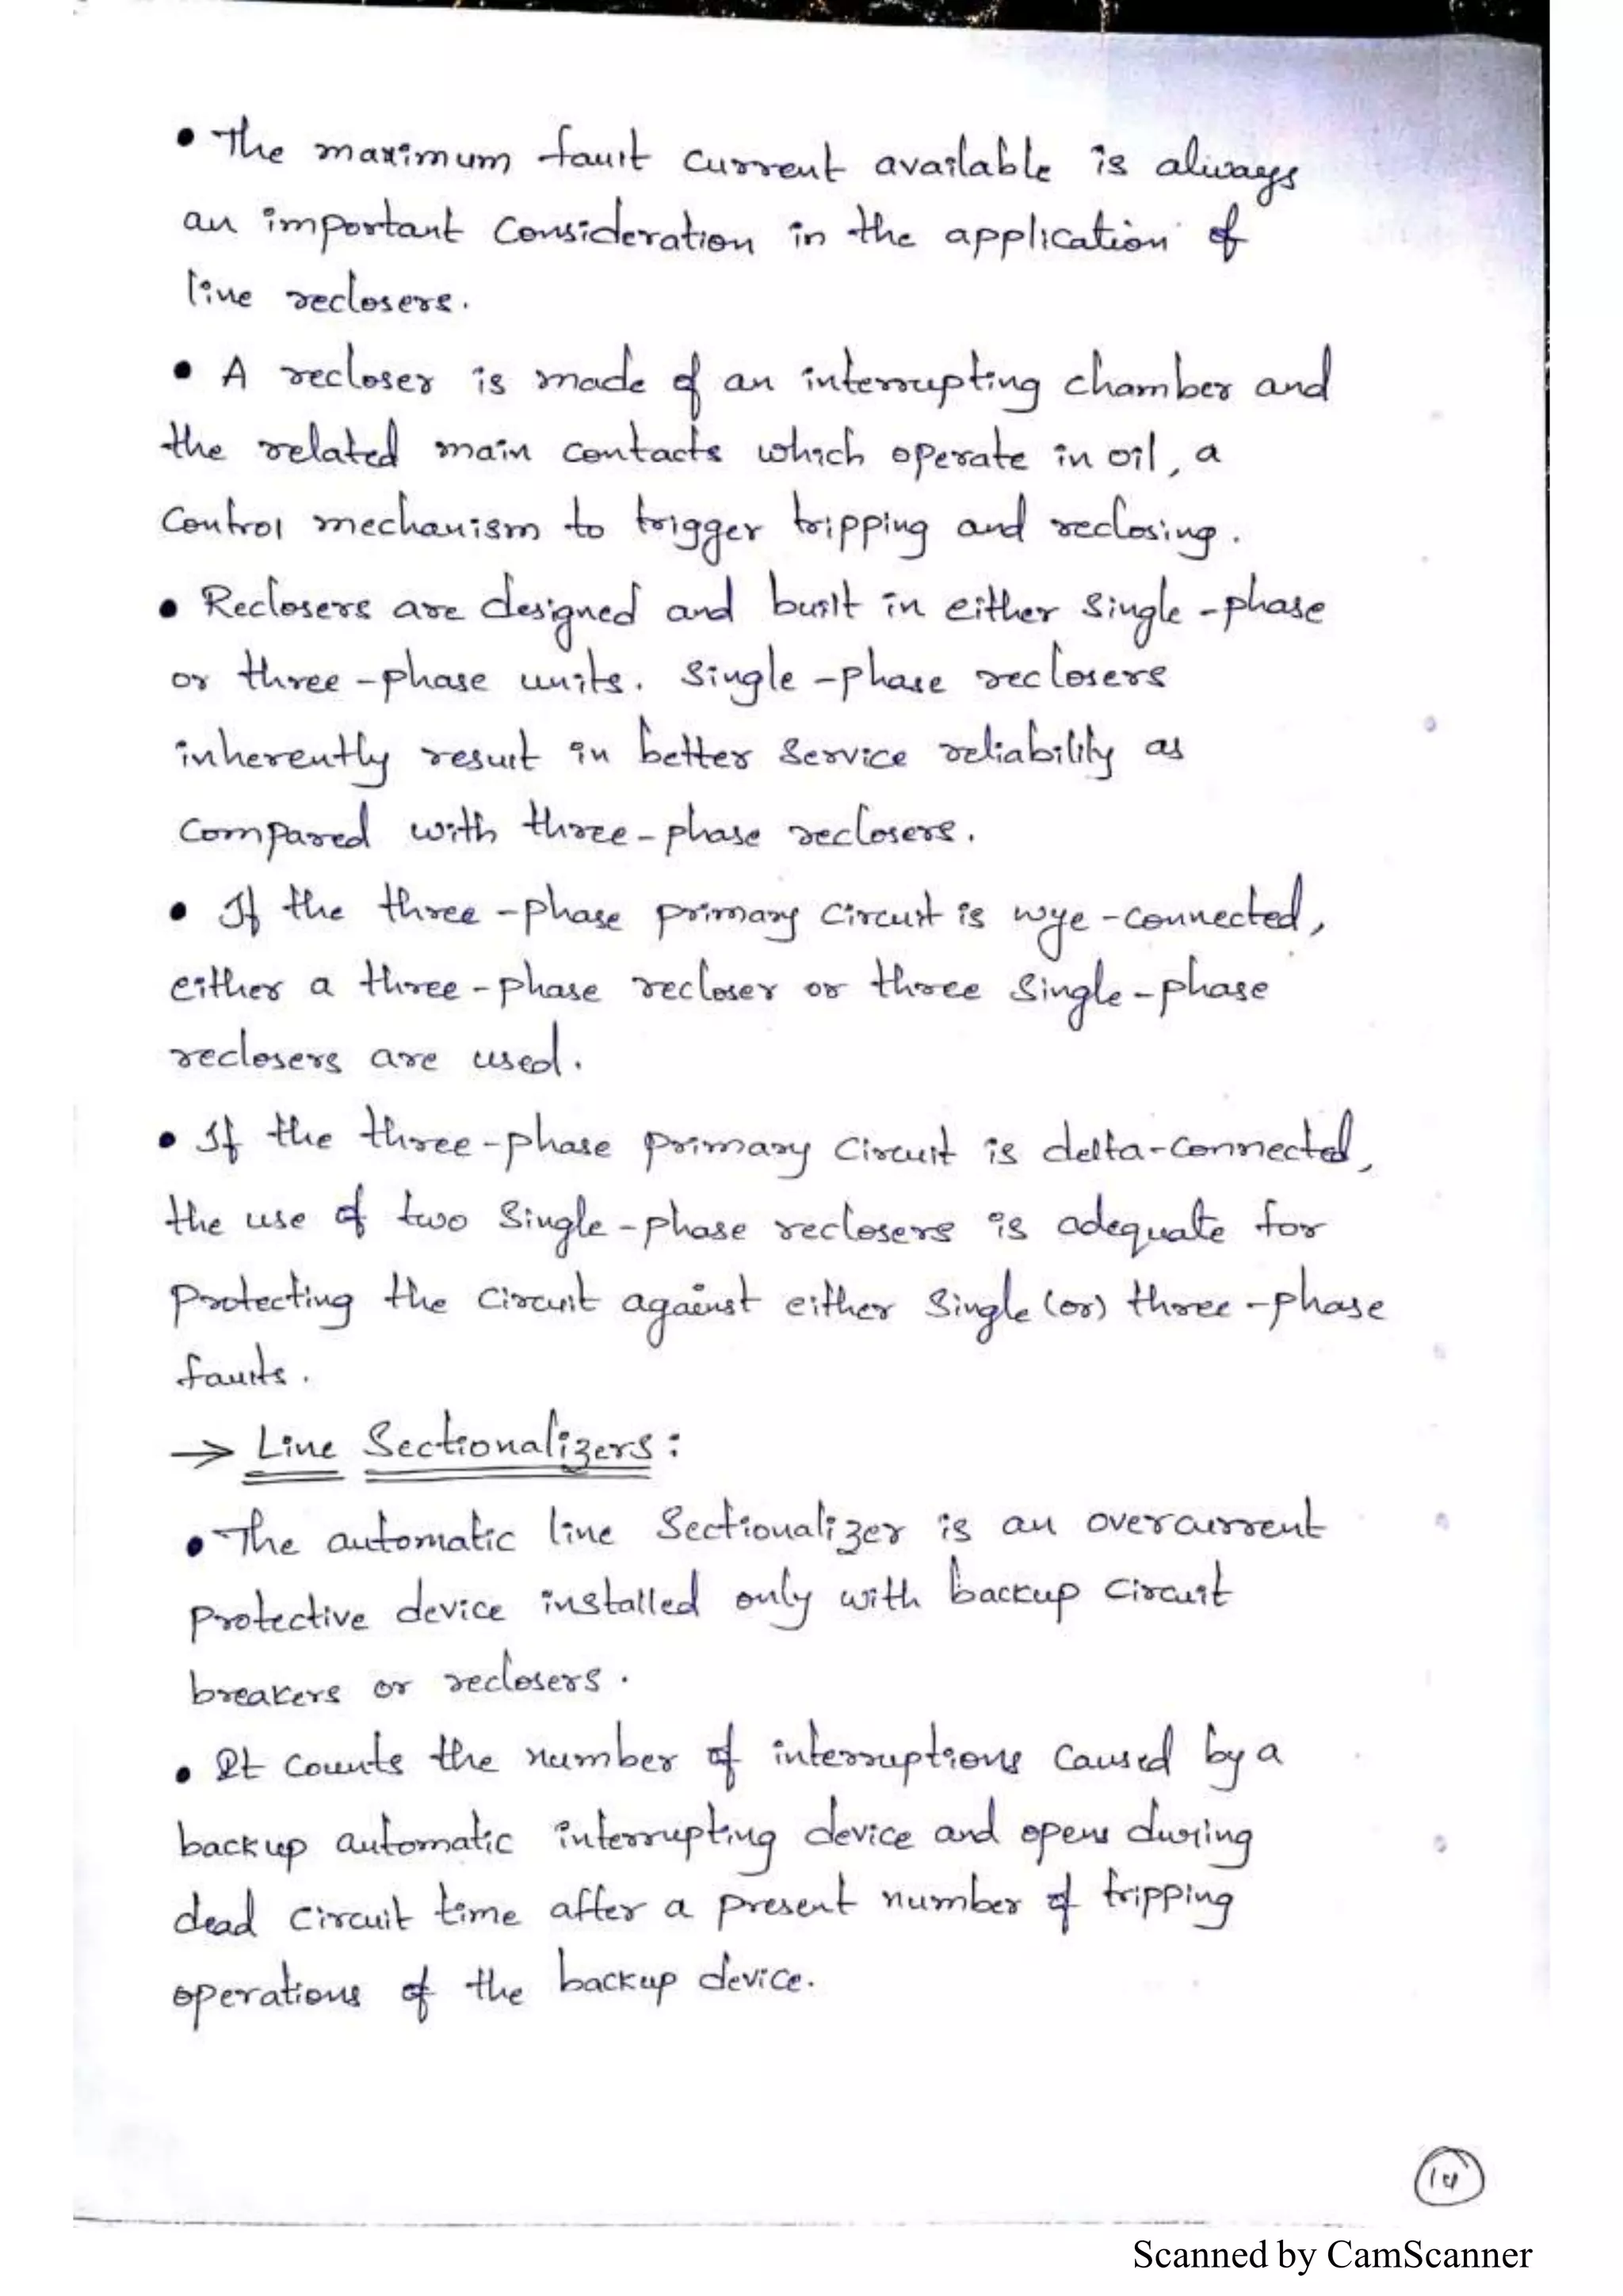 • The maximum fault current available is always
an important consideration in the application of
line reclosers.
• A recloser is made of an interrupting chamber and
the related main contacts which operate in oil, a
control mechanism to trigger tripping and reclosing.
• Reclosers are designed and built in either single-phase
or three-phase units. Single-phase reclosers
inherently result in better service reliability as
compared with three-phase reclosers.
• If the three-phase primary circuit is wye-connected,
either a three-phase recloser or three single-phase
reclosers are used.
• If the three-phase primary circuit is delta-connected,
the use of two single-phase reclosers is adequate for
protecting the circuit against either single (or) three-phase
faults.
→ Line Sectionalizers:
• The automatic line sectionalizer is an overcurrent
protective device installed only with backup circuit
breakers or reclosers.
• It counts the number of interruptions caused by a
backup automatic interrupting device and opens during
dead circuit time after a present number of tripping
operations of the backup device.
14
Scanned by CamScanner